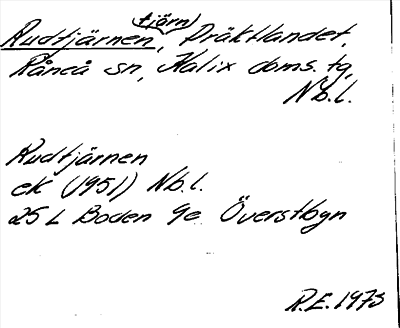 (tjärn)
Rudtjärnen, Präktlandet,
Råneå sn, Kalix doms. tg,
Nb.l.
Rudtjärnen
ek (1951) Nb.l.
25 L Boden 9e Överstbyn
R.E. 1973